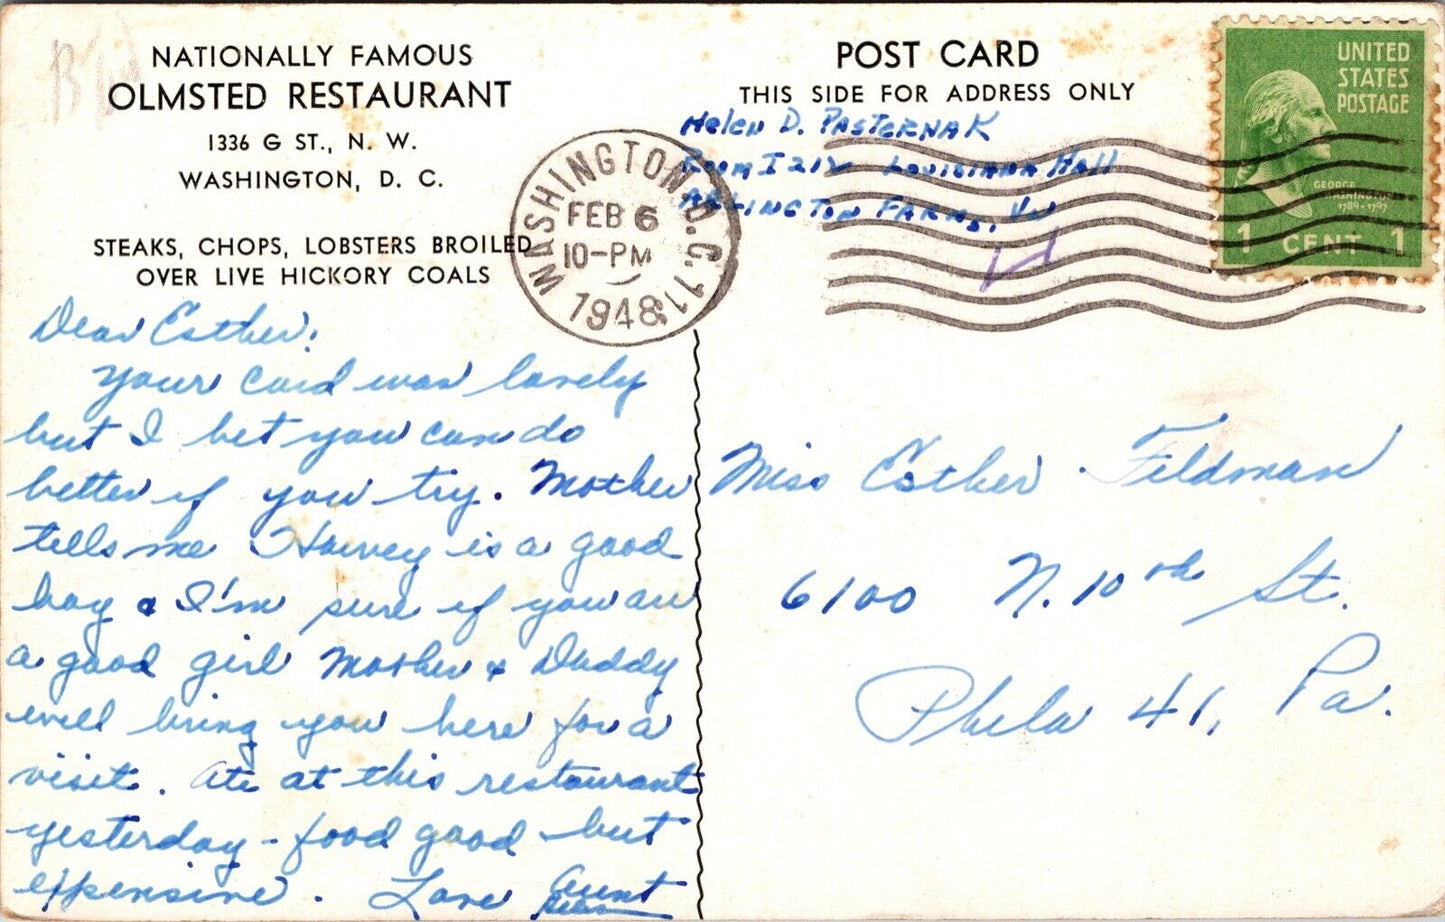 NATIONALLY FAMOUS
OLMSTED RESTAURANT
1336 G ST., N. W.
WASHINGTON, D. C.
STEAKS, CHOPS, LOBSTERS BROILED
OVER LIVE HICKORY COALS
Dear Esther:
Your card was lovely
but I bet you can do
better if you try. Mother
tells me Harvey is a good
boy & I'm sure if you are
a good girl Mother & Daddy
will bring you here for a
visit. Ate at this restaurant
yesterday - food good but
expensive. Love Aunt
Helen
POST CARD
THIS SIDE FOR ADDRESS ONLY
Helen D. Pasternak
Room I 212 Louisiana Hall
Arlington Farms, Va
WASHINGTON, D.C. 11
FEB 6
10-PM
1948
UNITED
STATES
POSTAGE
GEORGE
WASHINGTON
1789-1797
1 CENT 1
Miss Esther Feldman
6100 N. 10th St.
Phila 41, Pa.